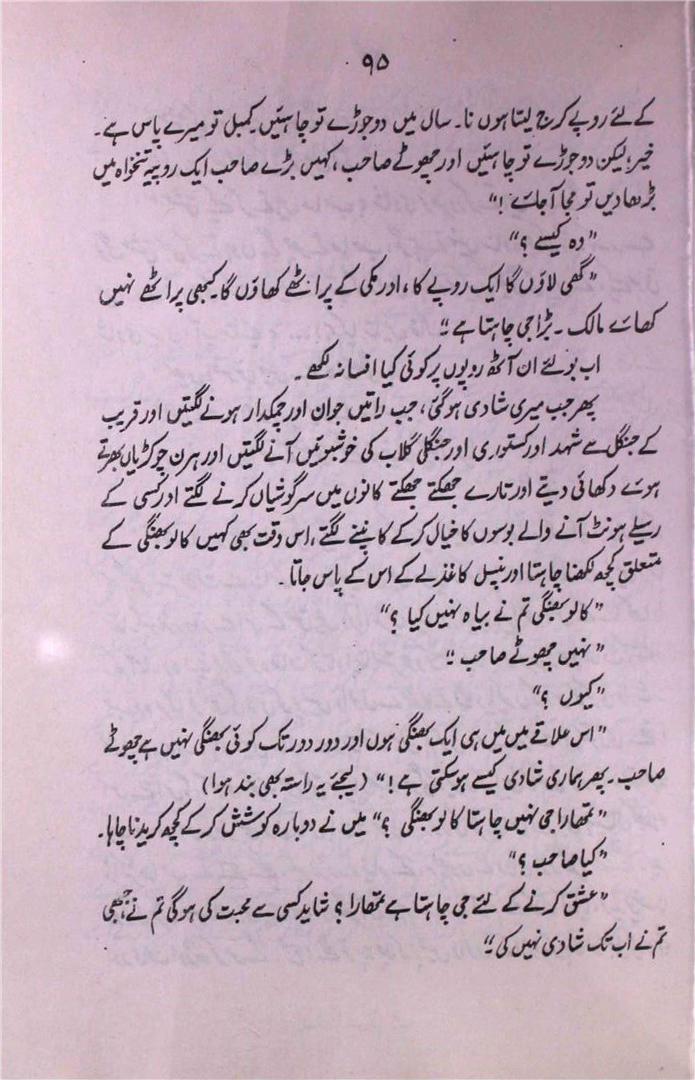 ۹۵
کے لئے روپے کرج لیتا ہوں نا۔ سال میں دو جوڑے تو چاہئیں۔ کمبل تو میرے پاس ہے۔
خیر، لیکن دو جوڑے تو چاہئیں اور چھوٹے صاحب، کہیں بڑے صاحب ایک روپیہ تنخواہ میں
بڑھا دیں تو مجا آ جائے!"
"وہ کیسے ؟"
"گھی لاؤں گا ایک روپے کا، اور مکی کے پراٹھے کھاؤں گا۔ کبھی پراٹھے نہیں
کھائے مالک۔ بڑا جی چاہتا ہے۔"
اب بولئے ان آٹھ روپوں پر کوئی کیا افسانہ لکھے۔
پھر جب میری شادی ہوگئی، جب راتیں جوان اور چمکدار ہونے لگتیں اور قریب
کے جنگل سے شہد اور کستوری اور جنگلی گلاب کی خوشبوئیں آنے لگتیں اور ہرن چوکڑیاں بھرتے
ہوئے دکھائی دیتے اور تارے جھکتے جھکتے کانوں میں سرگوشیاں کرنے لگتے اور کسی کے
رسیلے ہونٹ آنے والے بوسوں کا خیال کرکے کانپنے لگتے، اس وقت بھی کہیں کالو بھنگی کے
متعلق کچھ لکھنا چاہتا اور پنسل کاغذ لے کے اس کے پاس جاتا۔
"کالو بھنگی تم نے بیاہ نہیں کیا ؟"
"نہیں چھوٹے صاحب۔"
"کیوں ؟"
"اس علاقے میں میں ہی ایک بھنگی ہوں اور دور دور تک کوئی بھنگی نہیں ہے چھوٹے
صاحب۔ پھر ہماری شادی کیسے ہوسکتی ہے!" (لیجئے یہ راستہ بھی بند ہوا)
"تمھارا جی نہیں چاہتا کالو بھنگی ؟" میں نے دوبارہ کوشش کرکے کچھ کریدنا چاہا۔
"کیا صاحب ؟"
"عشق کرنے کے لئے جی چاہتا ہے تمھارا ؟ شاید کسی سے محبت کی ہوگی تم نے، جبھی
تم نے اب تک شادی نہیں کی۔"